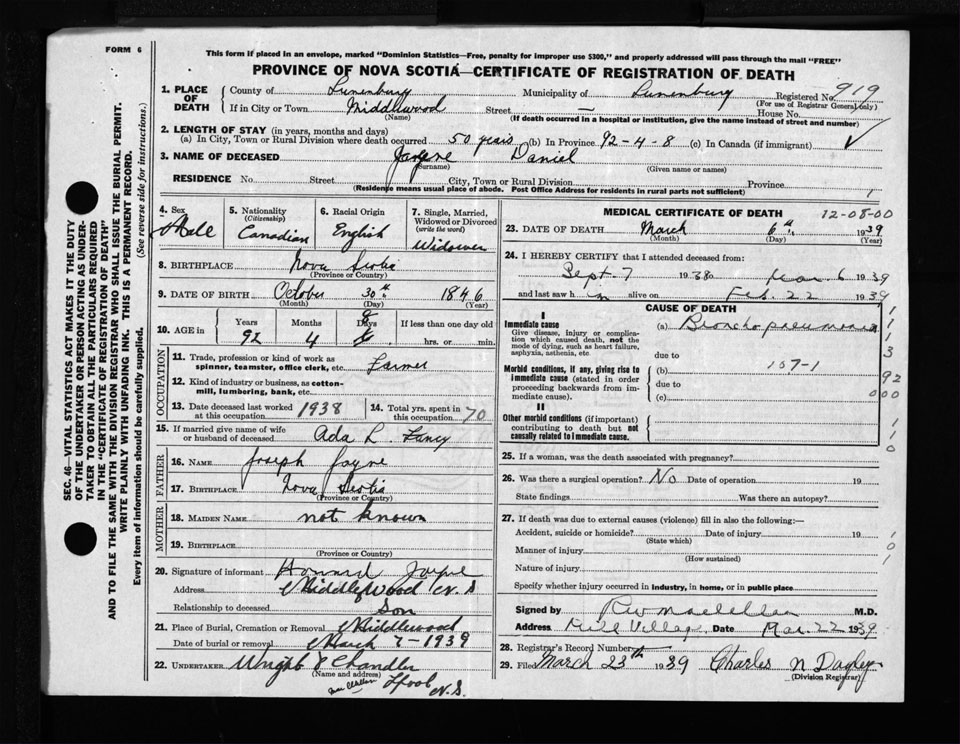 FORM 6
This form if placed in an envelope, marked "Dominion Statistics—Free, penalty for improper use $300," and properly addressed will pass through the mail "FREE"
PROVINCE OF NOVA SCOTIA—CERTIFICATE OF REGISTRATION OF DEATH
1. PLACE OF DEATH
County of Lunenburg Municipality of Lunenburg Registered No. 919
(For use of Registrar General only)
If in City or Town Middlewood Street — House No.
(Name) (If death occurred in a hospital or institution, give the name instead of street and number)
2. LENGTH OF STAY (in years, months and days)
(a) In City, Town or Rural Division where death occurred 50 years (b) In Province 92-4-8 (c) In Canada (if immigrant)
3. NAME OF DECEASED Jayne Daniel
(Surname) (Given name or names)
RESIDENCE No. Street City, Town or Rural Division Province
(Residence means usual place of abode. Post Office Address for residents in rural parts not sufficient) 1
4. Sex Male
5. Nationality (Citizenship) Canadian
6. Racial Origin English
7. Single, Married, Widowed or Divorced (write the word) Widower
8. BIRTHPLACE Nova Scotia
(Province or Country)
9. DATE OF BIRTH October 30th 1846
(Month) (Day) (Year)
10. AGE in Years Months Days If less than one day old
92 4 8 hrs. or min.
OCCUPATION
11. Trade, profession or kind of work as spinner, teamster, office clerk, etc. Farmer
12. Kind of industry or business, as cotton-mill, lumbering, bank, etc.
13. Date deceased last worked at this occupation 1938
14. Total yrs. spent in this occupation 70
15. If married give name of wife or husband of deceased Ada L. Fancy
FATHER
16. NAME Joseph Jayne
17. BIRTHPLACE Nova Scotia
(Province or Country)
MOTHER
18. MAIDEN NAME not known
19. BIRTHPLACE
(Province or Country)
20. Signature of informant Howard Jayne
Address Middlewood N.S
Relationship to deceased Son
21. Place of Burial, Cremation or Removal Middlewood
Date of burial or removal March 7-1939
22. UNDERTAKER Wright & Chandler
(Name and address)
N.S.
MEDICAL CERTIFICATE OF DEATH 12-08-00
23. DATE OF DEATH March 6th 1939
(Month) (Day) (Year)
24. I HEREBY CERTIFY that I attended deceased from:
Sept. 7 1938 to Mar. 6 1939
and last saw him alive on Feb. 22 1939
CAUSE OF DEATH
I
Immediate cause (a) Bronchopneumonia
Give disease, injury or complication which caused death, not the mode of dying, such as heart failure, asphyxia, asthenia, etc
due to
Morbid conditions, if any, giving rise to immediate cause (stated in order proceeding backwards from immediate cause).
(b) 107-1
due to
(c)
II
Other morbid conditions (if important) contributing to death but not causally related to immediate cause.
1
1
1
3
92
000
1
1
0
25. If a woman, was the death associated with pregnancy?
26. Was there a surgical operation? No Date of operation 19
State findings Was there an autopsy?
27. If death was due to external causes (violence) fill in also the following:—
Accident, suicide or homicide? Date of injury 19
(State which)
Manner of injury
(How sustained)
Nature of injury
1
0
1
Specify whether injury occurred in industry, in home, or in public place
Signed by R W Maclellan M.D.
Address Mill Village Date Mar. 22 1939
28. Registrar's Record Number
29. Filed March 23th 1939 Charles N Dagley
(Division Registrar)
SEC. 46—VITAL STATISTICS ACT MAKES IT THE DUTY
OF THE UNDERTAKER OR PERSON ACTING AS UNDER-
TAKER TO OBTAIN ALL THE PARTICULARS REQUIRED
IN THE "CERTIFICATE OF REGISTRATION OF DEATH"
AND TO FILE THE SAME WITH THE DIVISION REGISTRAR WHO SHALL ISSUE THE BURIAL PERMIT.
WRITE PLAINLY WITH UNFADING INK. THIS IS A PERMANENT RECORD.
Every item of information should be carefully supplied. (See reverse side for instructions.)